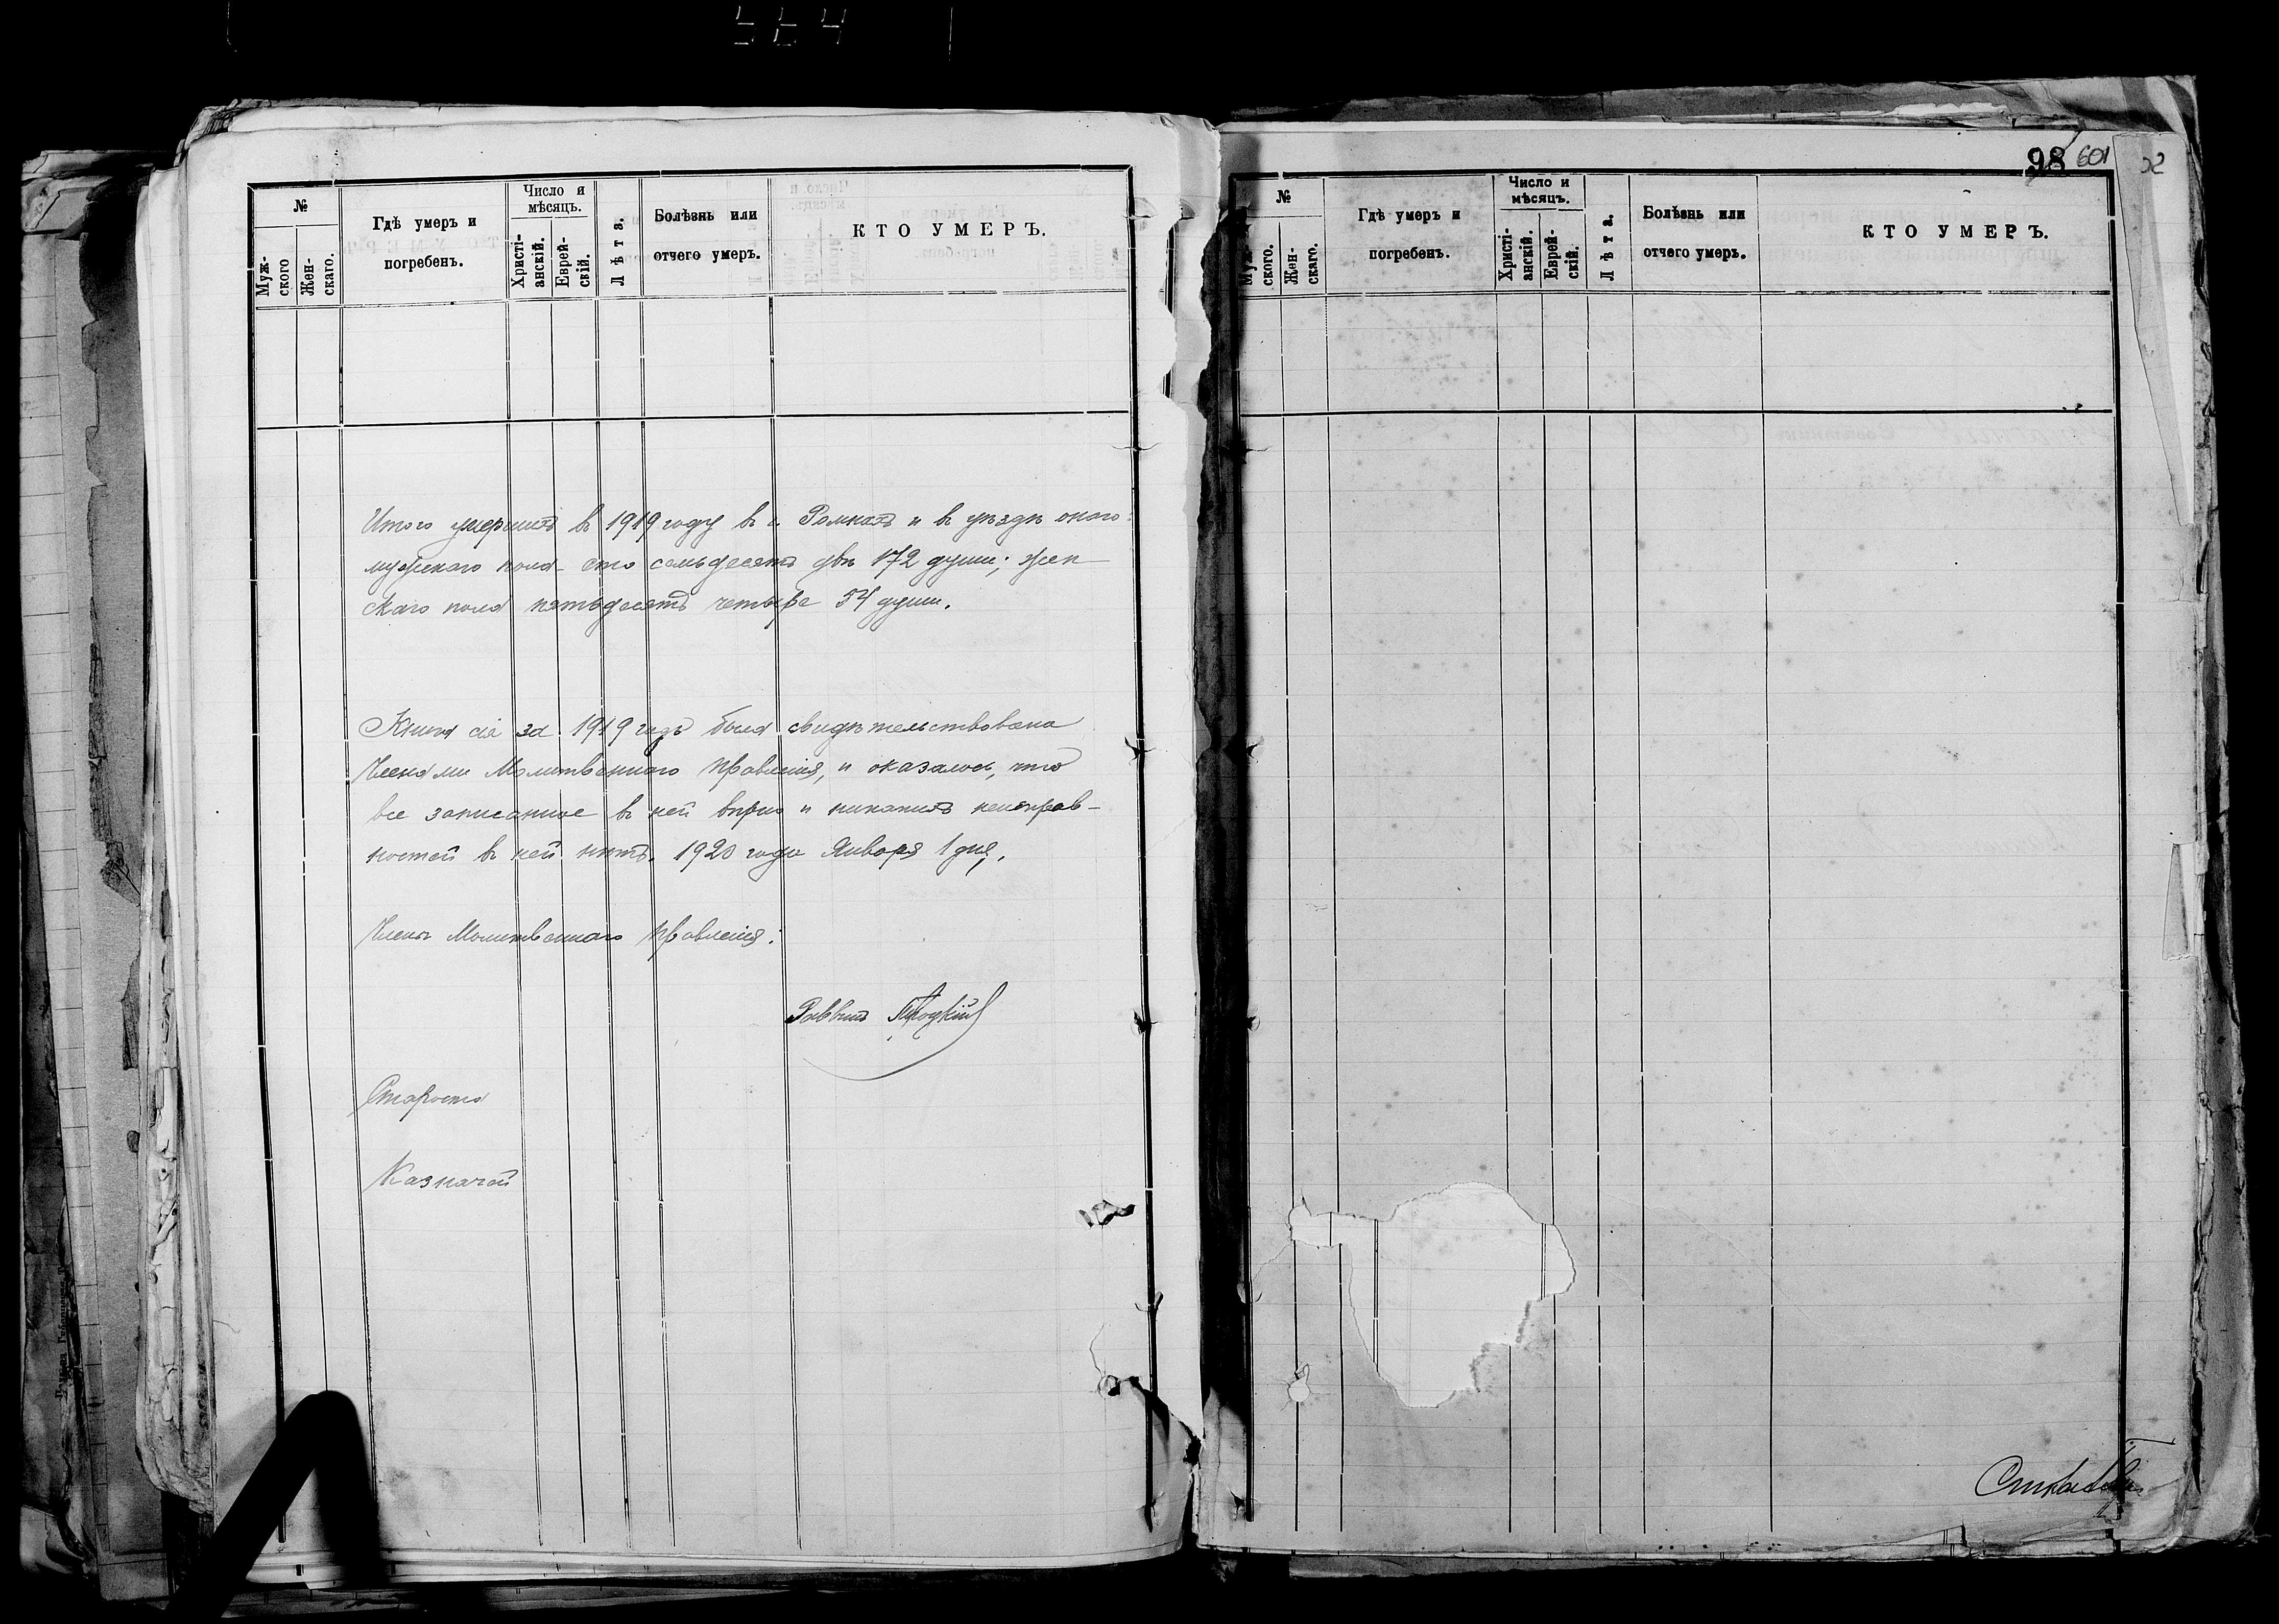 564
№
Муж-
ского
Жен-
скаго.
Гдѣ умеръ и
погребенъ.
Число и
мѣсяцъ.
Христі-
анскій.
Еврей-
скій.
Лѣта.
Болѣзнь или
отчего умеръ.
КТО УМЕРЪ.
Итого умершихъ въ 1919 году въ г. Ромнахъ и въ уѣздѣ онаго:
мужскаго пола - сто семьдесятъ двѣ 172 души; жен
скаго пола пятьдесятъ четыре 54 души.
Книга сія за 1919 годъ была свидѣтельствована
Членами Молитвеннаго Правленія, и оказалось, что
все записанное въ ней вѣрно и никакихъ неисправ-
ностей въ ней нѣтъ. 1920 года Января 1 дня.
Члены Молитвеннаго Правленія:
Раввинъ
Староста
Казначей
98 601
№
Муж-
ского.
Жен-
скаго.
Гдѣ умеръ и
погребенъ.
Число и
мѣсяцъ.
Христі-
анскій.
Еврей-
скій.
Лѣта.
Болѣзнь или
отчего умеръ.
КТО УМЕРЪ.